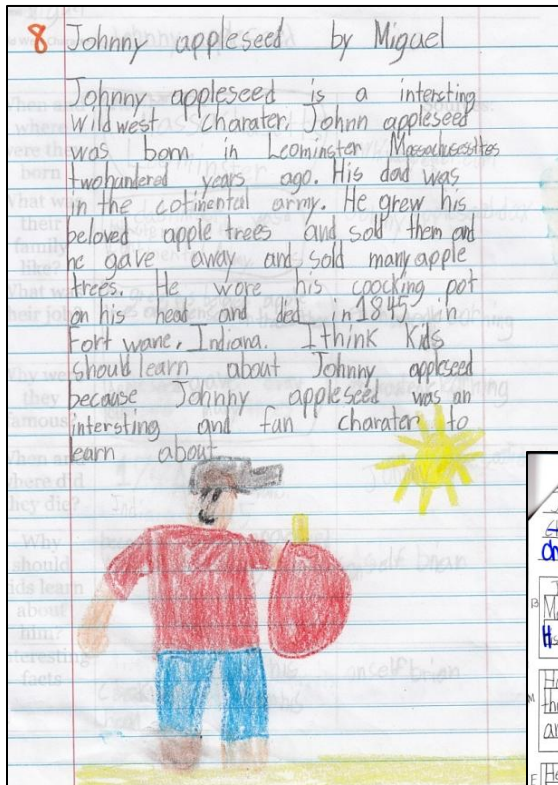 8 Johnny appleseed by Miguel
Johnny appleseed is a intersting
wildwest charater. Johnn appleseed
was born in Leominster Massachusesttes
twohundered years ago. His dad was
in the cotinental army. He grew his
beloved apple trees and sold them and
he gave away and sold many apple
trees. He wore his coocking pot
on his head and died in 1845 in
Fort wane, Indiana. I think kids
should learn about Johnny appleseed
because Johnny appleseed was an
intersting and fun charater to
learn about